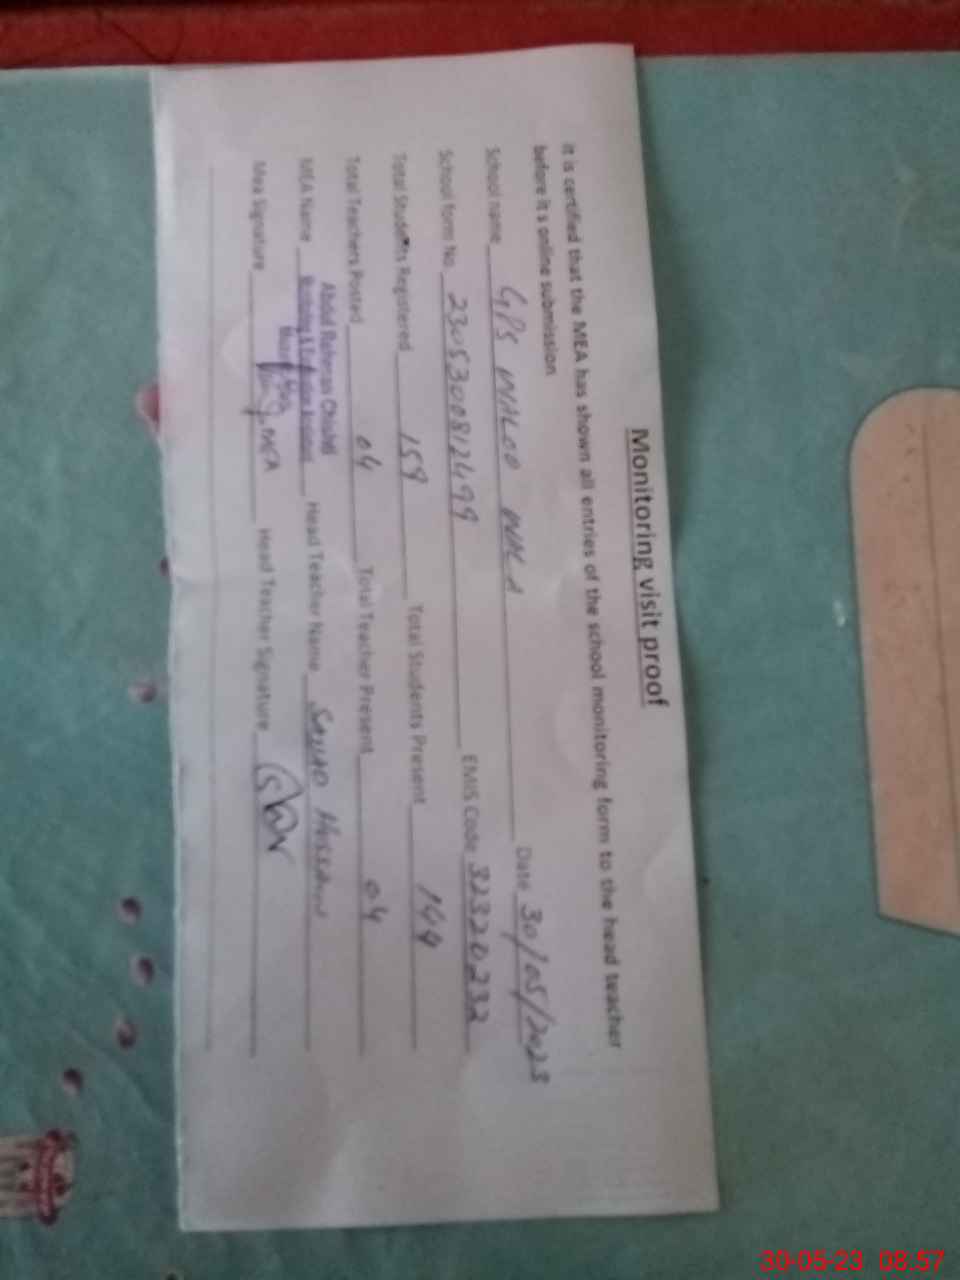 Monitoring visit proof
It is certified that the MEA has shown all entries of the school monitoring form to the head teacher
before it s online submission
School name GPS WALOO WALA Date 30/05/2023
School form No 2305300812499 EMIS Code 32320232
Total Students Registered 159 Total Students Present 144
Total Teachers Posted 04 Total Teacher Present 04
Abdul Rehman Chishti
MEA Name Monitoring & Evaluation Assistant Head Teacher Name SAJJAD HUSSAIN
Mea Signature MEA Head Teacher Signature
30-05-23 08:57